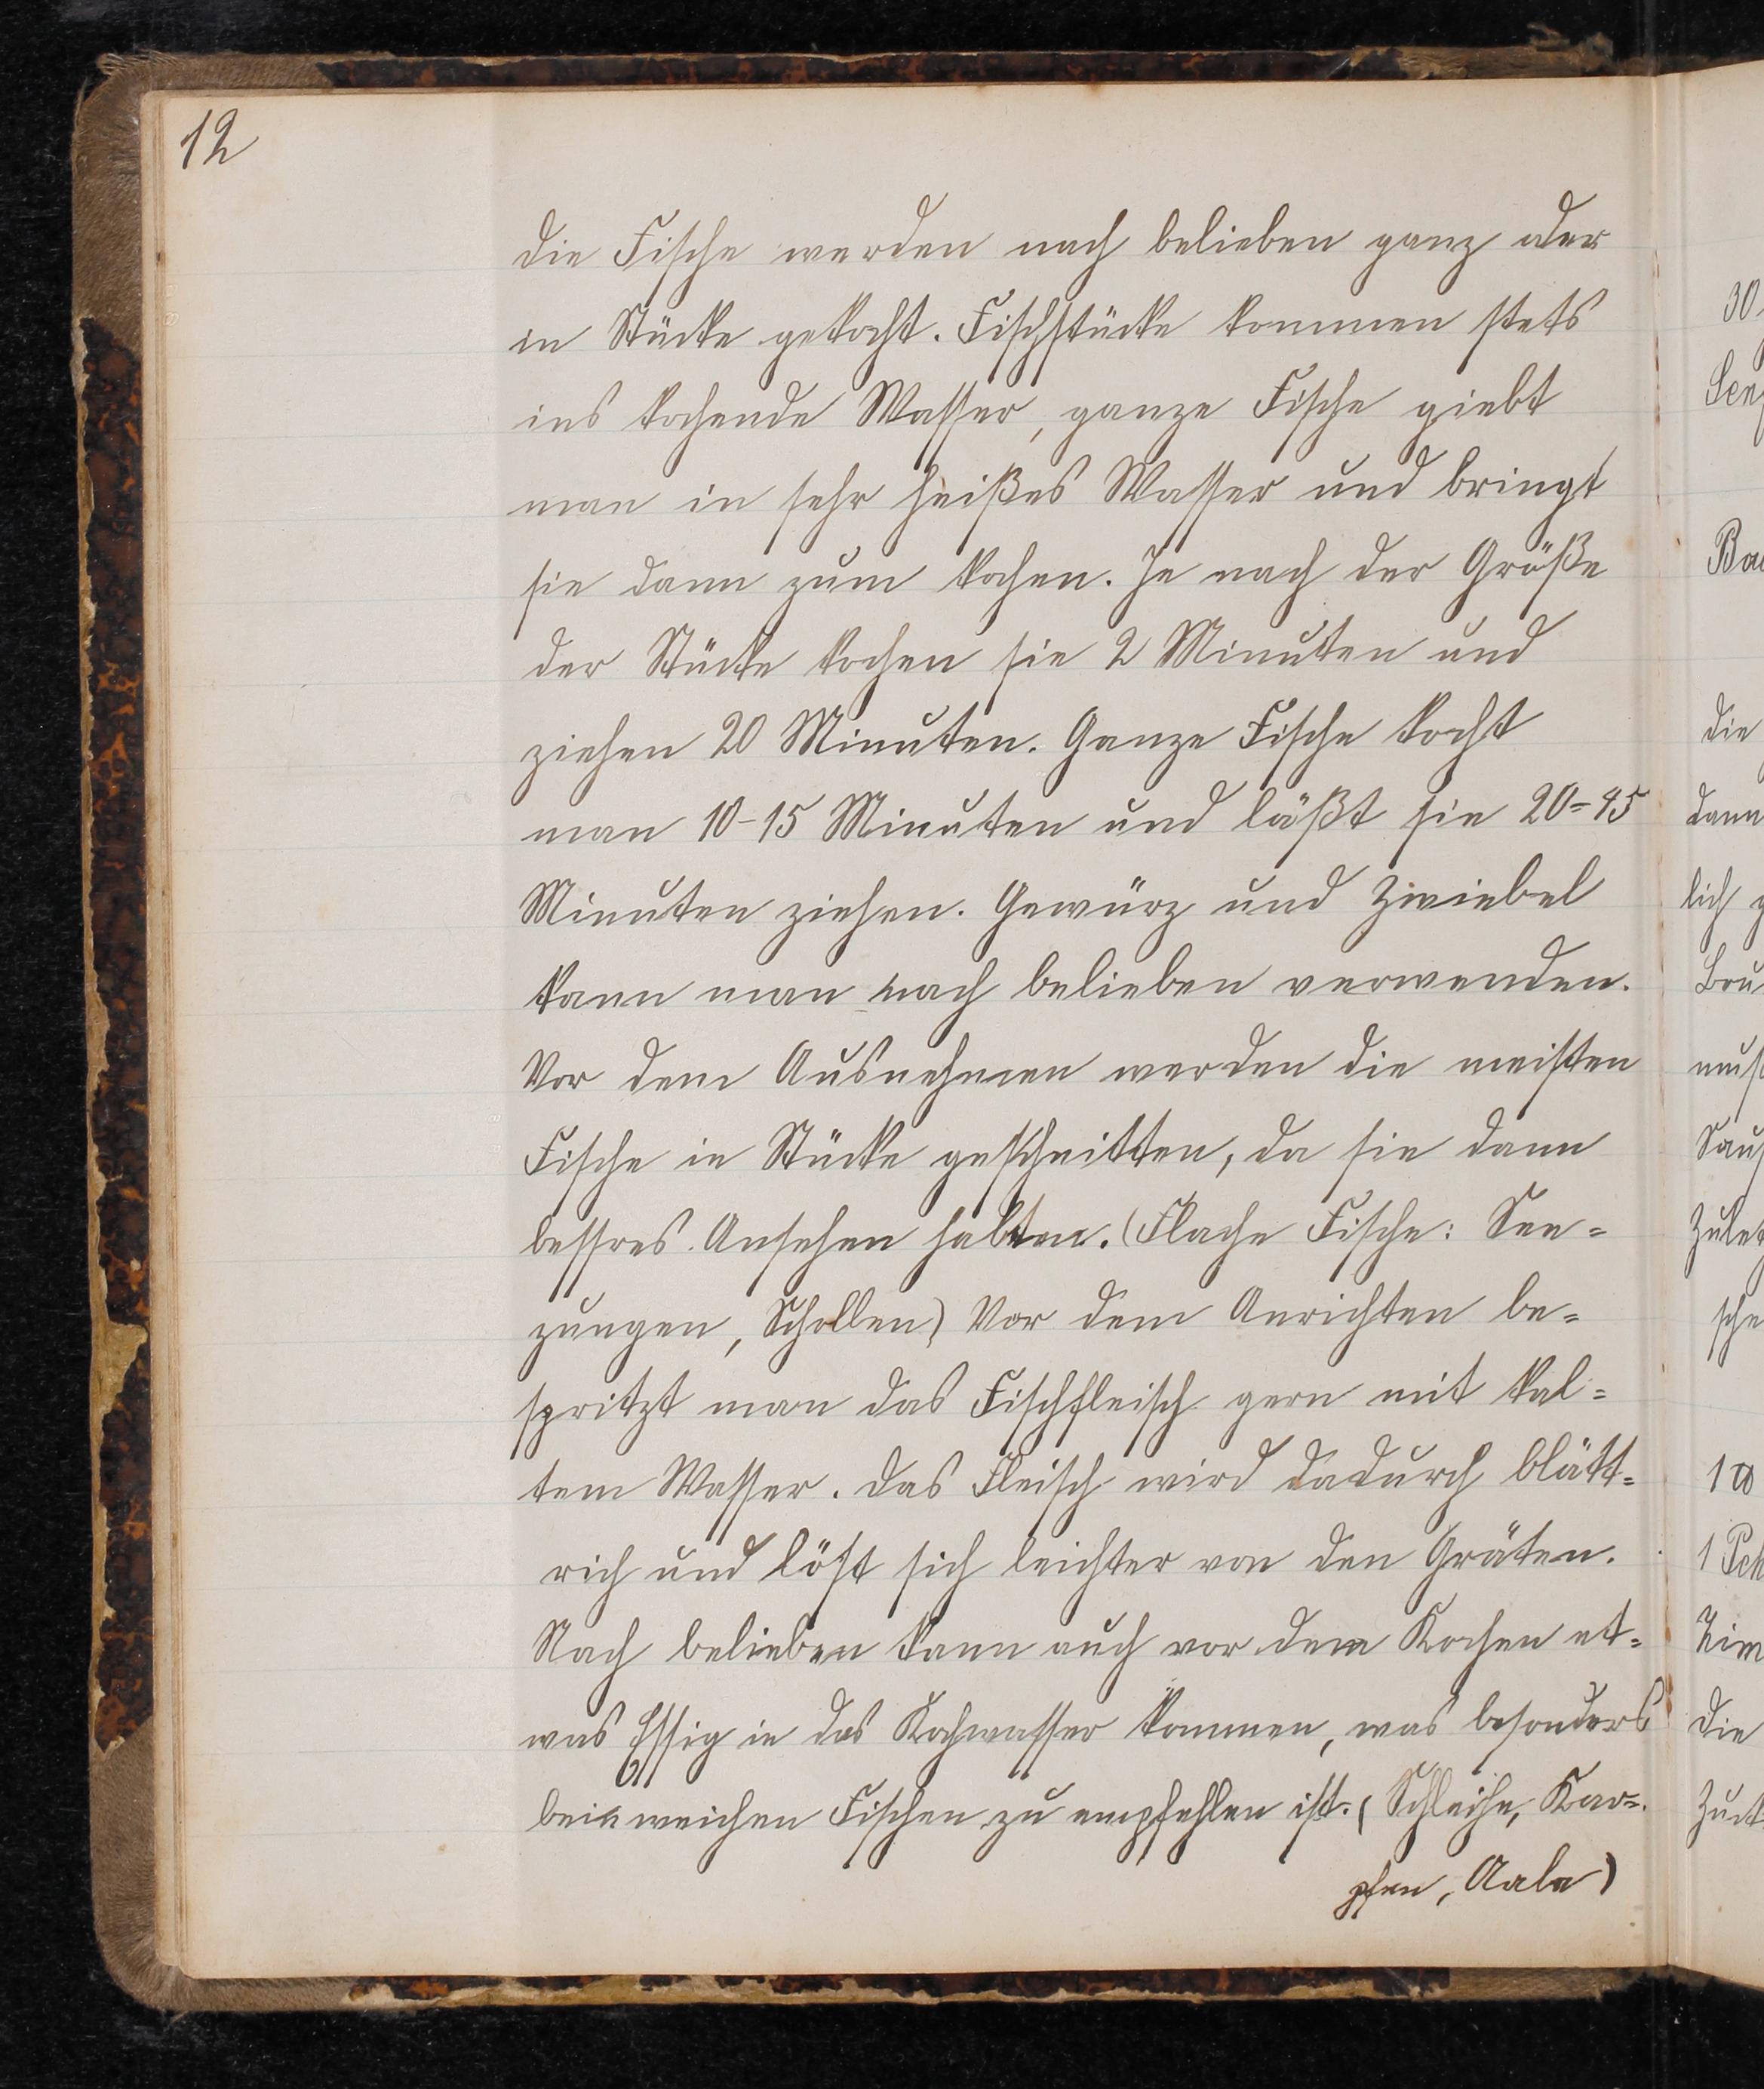 12
die Fische werden nach belieben ganz oder
in Stücke gekocht. Fischstücke kommen stets
ins kochende Wasser, ganze Fische giebt
man in sehr heißes Wasser und bringt
sie dann zum kochen. Je nach der Größe
der Stücke kochen sie 2 Minuten und
ziehen 20 Minuten. Ganze Fische kocht
man 10-15 Minuten und läßt sie 20-45
Minuten ziehen. Gewürz und Zwiebel
kann man nach belieben verwenden.
Vor dem Ausnehmen werden die meisten
Fische in Stücke geschnitten, da sie dann
bessres Ansehen haben. (Flache Fische: See=
zungen, Schollen) Vor dem Anrichten be=
spritzt man das Fischfleisch gern mit kal=
tem Wasser. das Fleisch wird dadurch blätt=
rich und löst sich leichter von den Gräten.
Nach belieben kann auch vor dem Kochen et=
was Essig in das Kochwasser kommen, was besonders
bei weichen Fischen zu empfehlen ist. (Schleihe, Kar=
pfen, Aale)
30
die
dann
lich
1
1
die